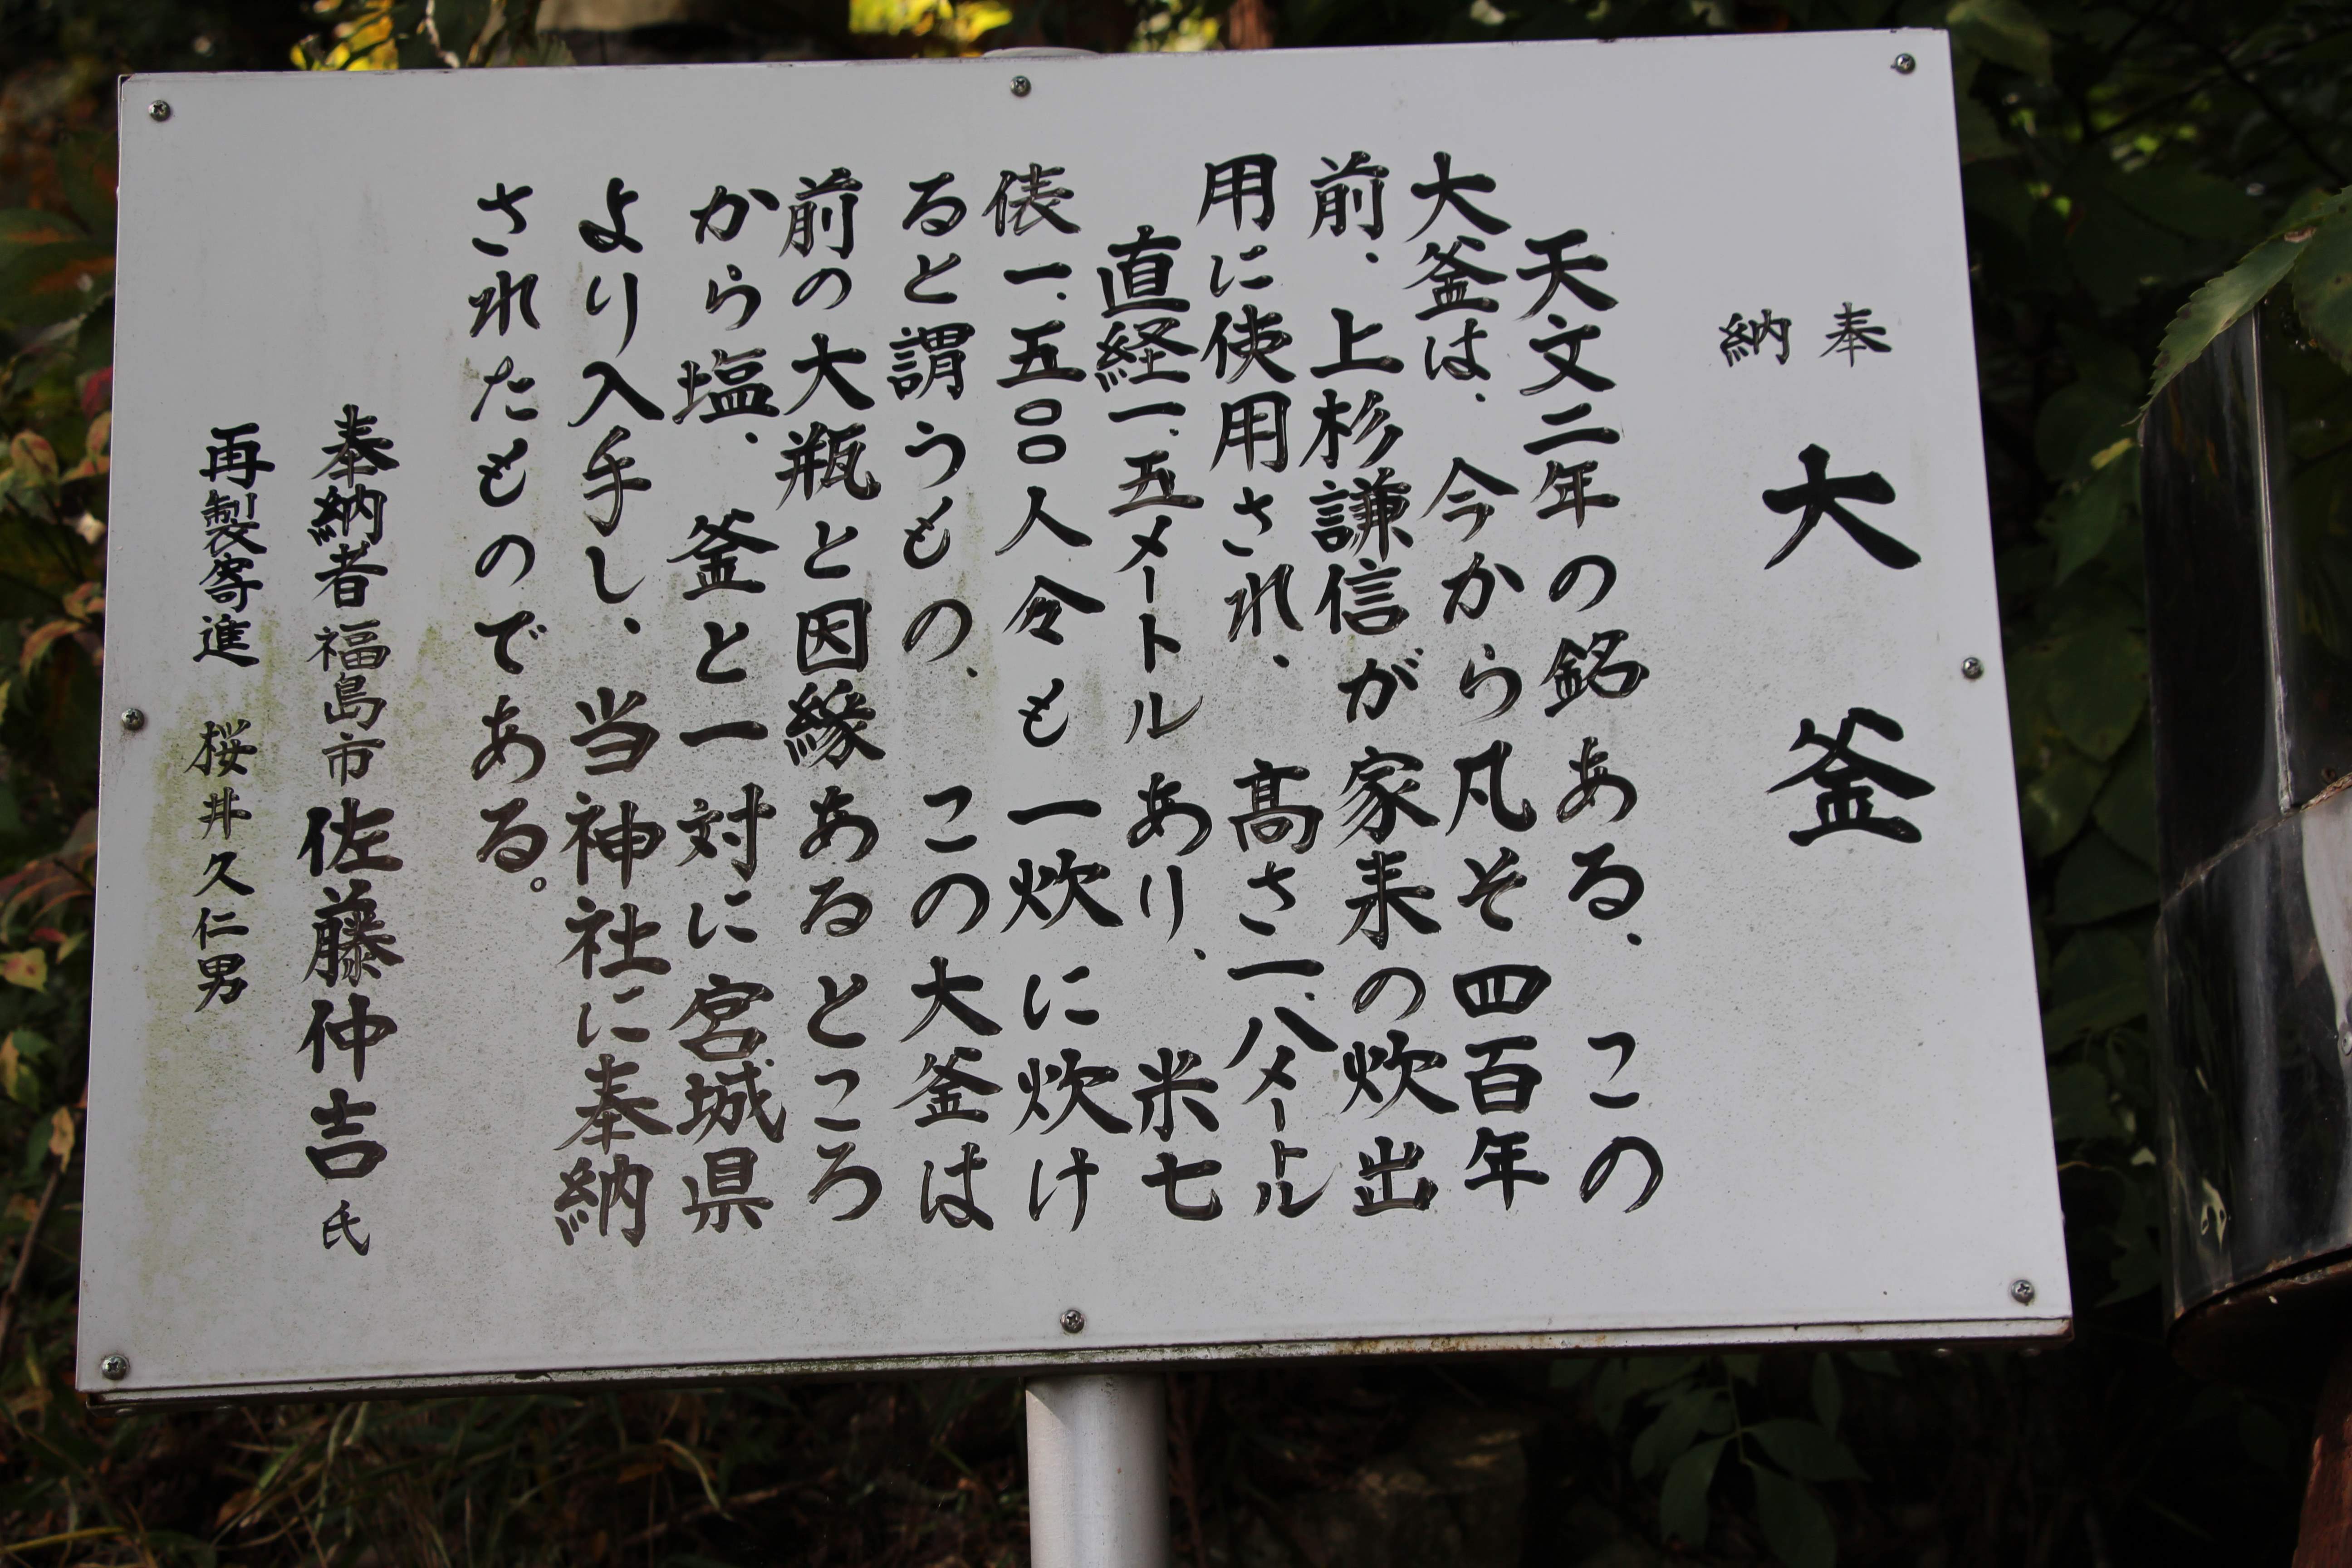 奉納
大釜
天文二年の銘ある、この
大釜は、今から凡そ四百年
前、上杉謙信が家来の炊出
用に使用され、高さ一、八メートル
直経一、五メートルあり、米七
俵一、五〇〇人令も一炊に炊け
ると謂うもの、この大釜は
前の大瓶と因縁あるところ
から塩、釜と一対に宮城県
より入手し、当神社に奉納
されたものである。
奉納者福島市佐藤仲吉氏
再製寄進 桜井久仁男